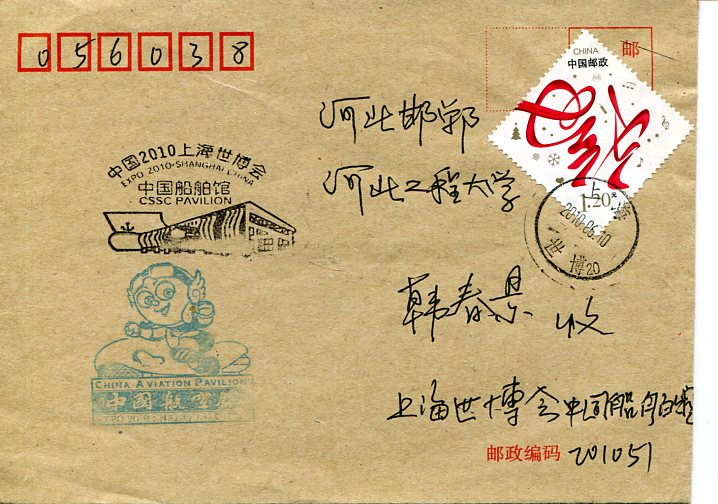 056038
邮
CHINA
中国邮政
1.20元
上海
2010.06.10
世博20
中国2010上海世博会
EXPO 2010·SHANGHAI CHINA
中国船舶馆
CSSC PAVILION
河北邯郸
河北工程大学
韩春景 收
CHINA AVIATION PAVILION
中國航空館
上海世博会中国船舶馆
邮政编码 201051